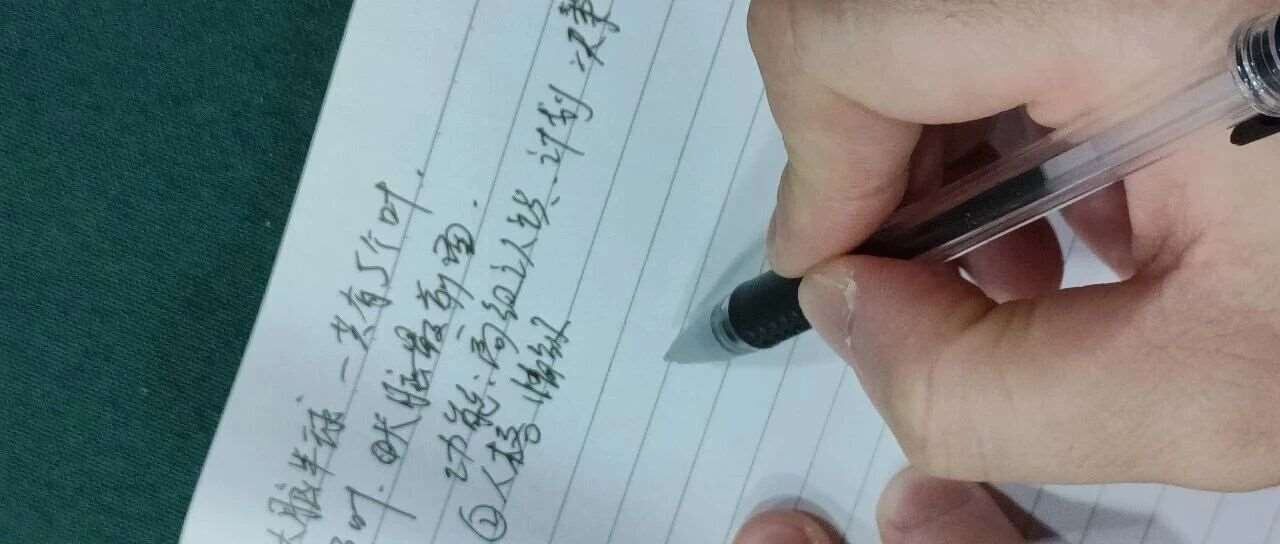 大脑半球 一共有5个叶.
叶. ①大脑最前面.
功能: 高级认知、计划 决策
②人格 情绪